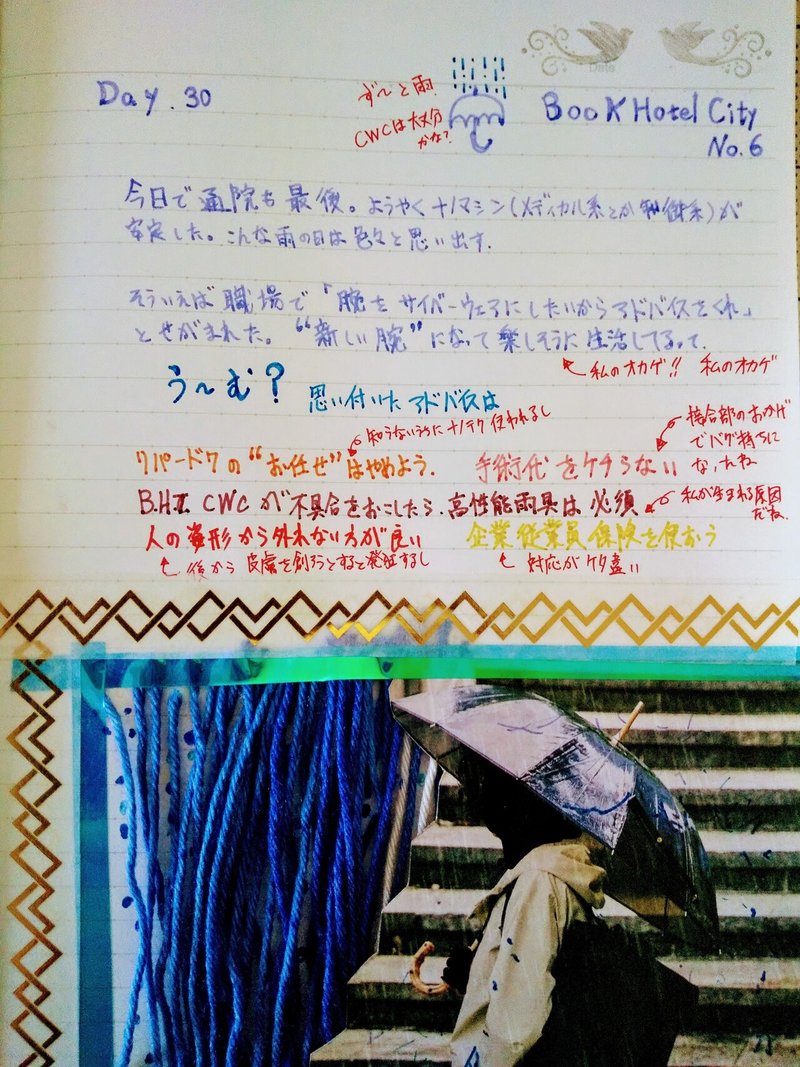 Date
Day. 30
ず〜と雨
CWCは大丈夫
かな?
Book Hotel City
No.6
今日で通院も最後。ようやくナノマシン(メディカル系とか 系)が
安定した。こんな雨の日は色々と思い出す.
そういえば職場で「腕をサイバーウェアにしたいからアドバイスをくれ」
とせがまれた。“新しい腕”になって楽しそうに生活してるって.
私のオカゲ!! 私のオカゲ
う〜む?
思い付いたアドバイスは
知らないうちにナノテク使われるし
接合部のおかげ
でバグ持ちに
なったね
リパードクの“お任せ”はやめよう.
手術代をケチらない
B.H.I. CWCが不具合をおこしたら.高性能雨具は必須
私が生まれる原因
だね.
人の姿形から外れない方が良い
企業従業員保険を使おう
後から皮膚を創ろうとすると発狂するし
対応がケタ違い